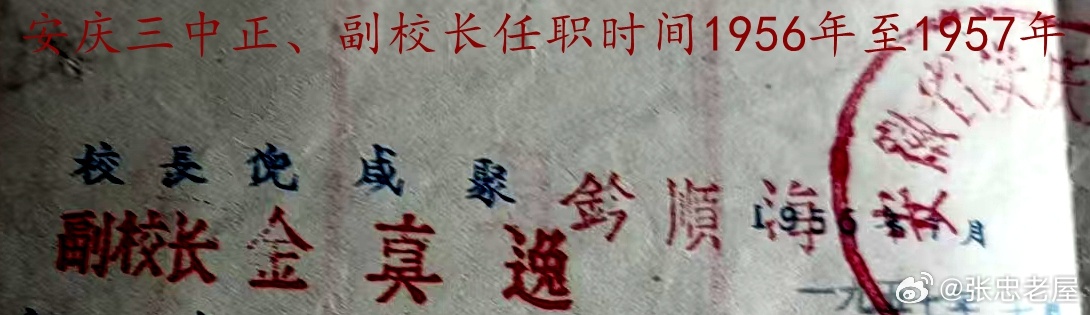 安庆三中正、副校长任职时间1956年至1957年
校長倪成聚
副校长金真逸 鈐順海
1956年 月
一九五
@张忠老屋